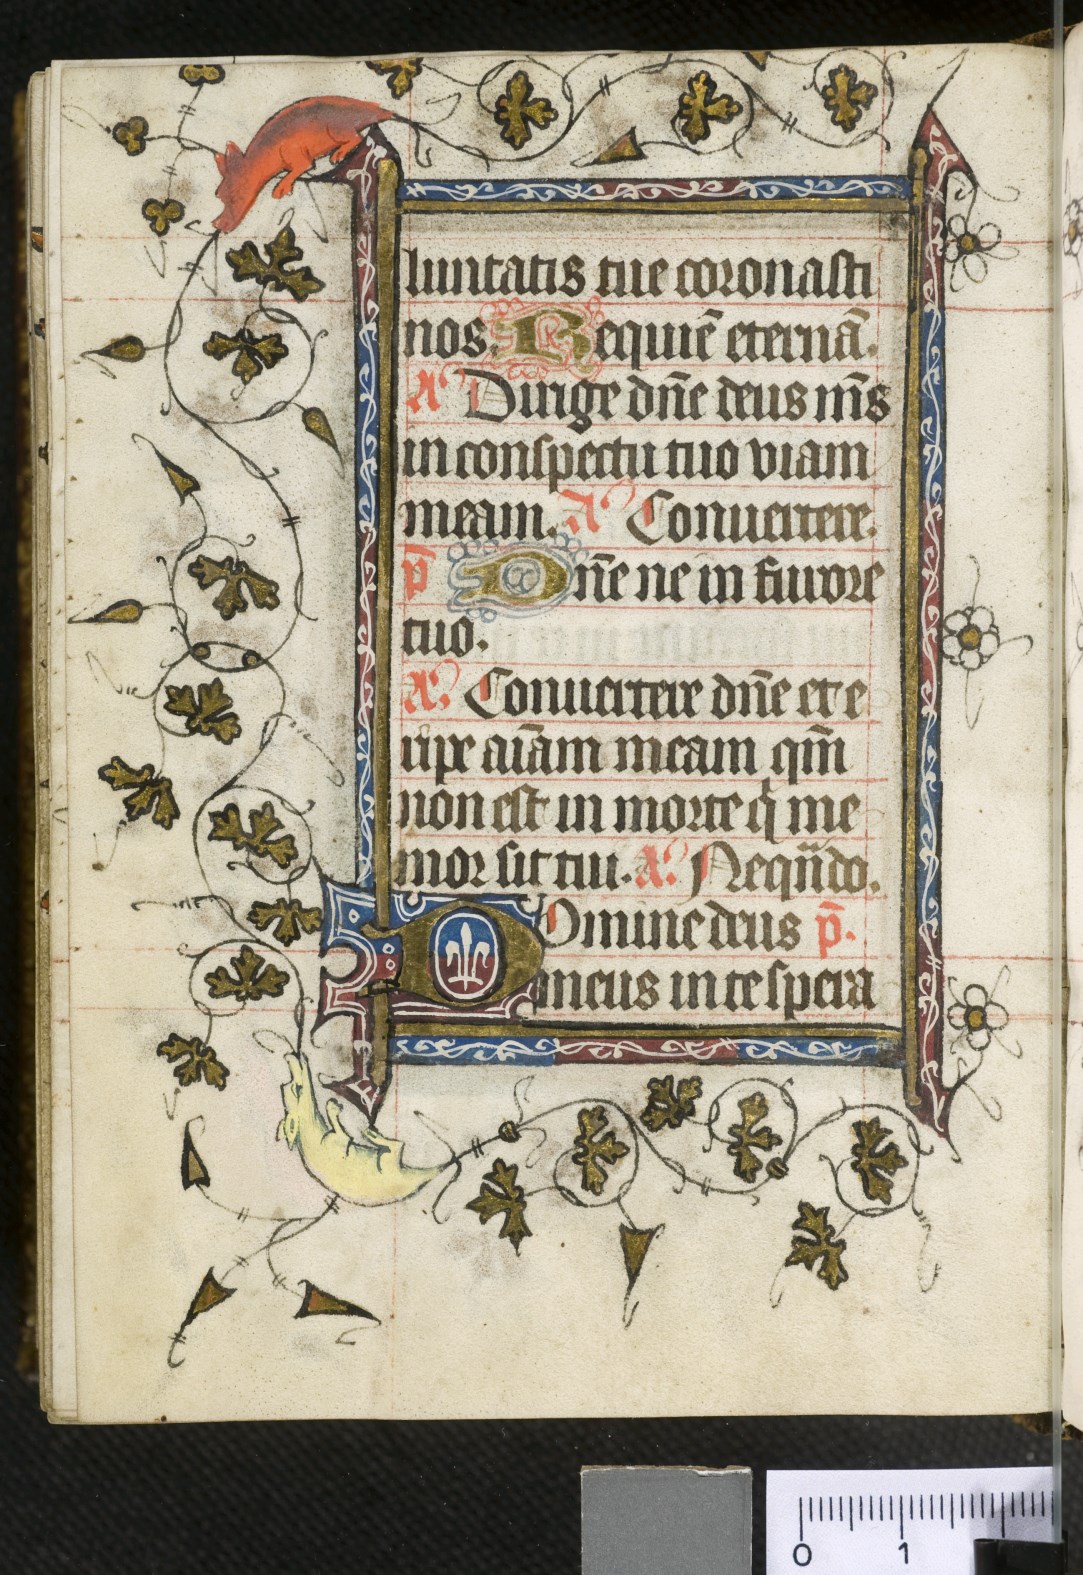 luntatis tue coronasti
nos. Requiē eternā.
A' Dirige dn̄e deus m̄s
in conspectu tuo viam
meam. A' Conuertere.
p̄ Dn̄e ne in furore
tuo.
A'. Conuertere dn̄e et e
ripe aīam meam qm̄
non est in morte q̇ me
mor sit tui. A'. Neqn̄do.
Domine deus p̄.
meus in te spera
0 1